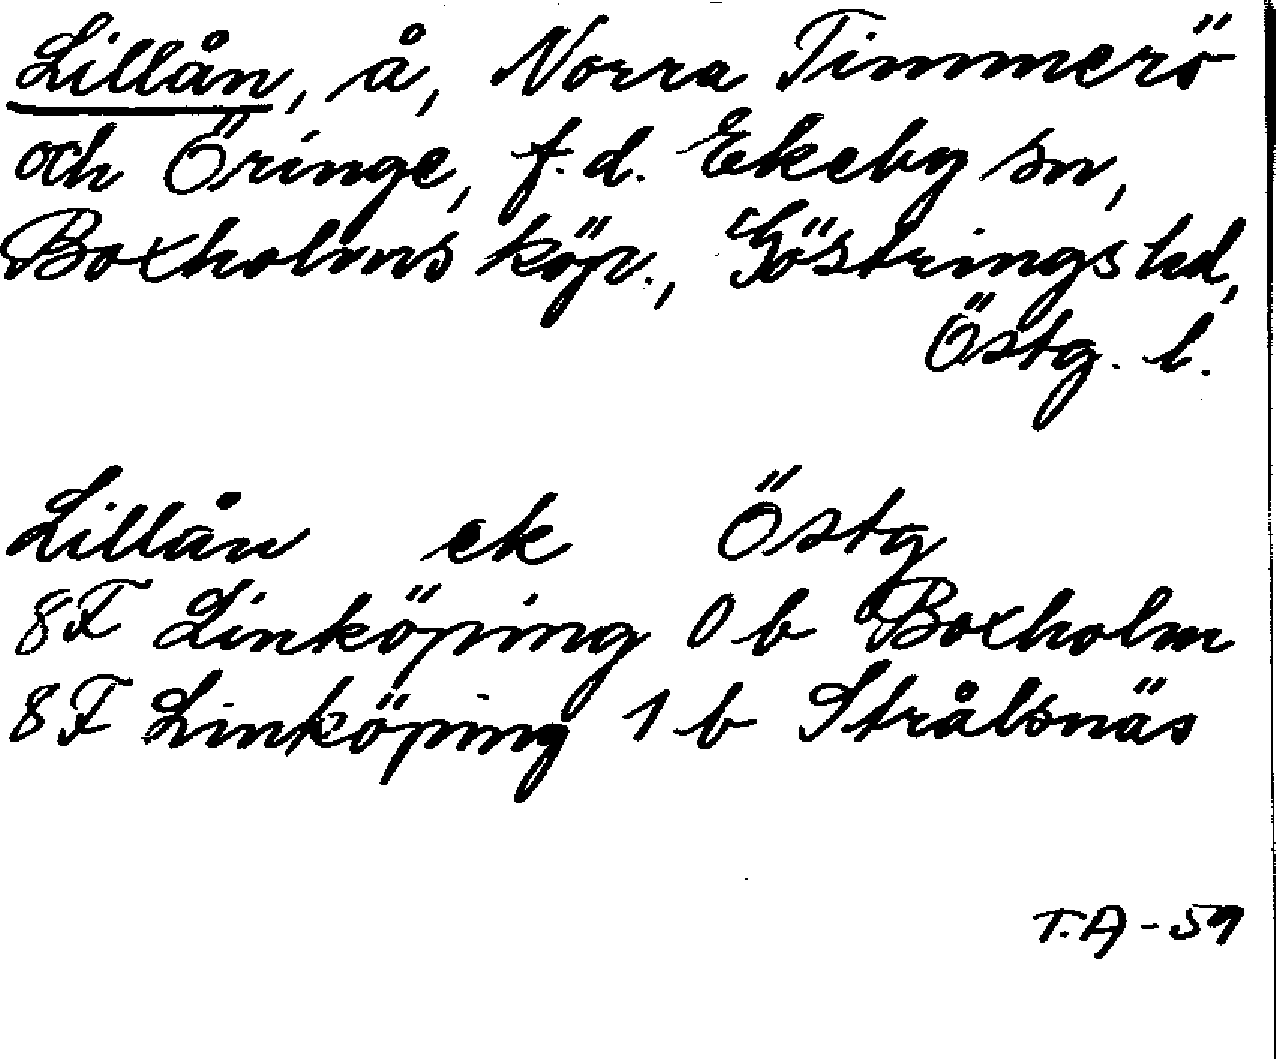 Lillån, å, Norra Timmerö
och Öringe, f.d. Ekeby sn,
Boxholms köp., Göstrings hd,
Östg. l.
Lillån ek Östg
8F Linköping 0 b Boxholm
8F Linköping 1 b Strålsnäs
T.A-59